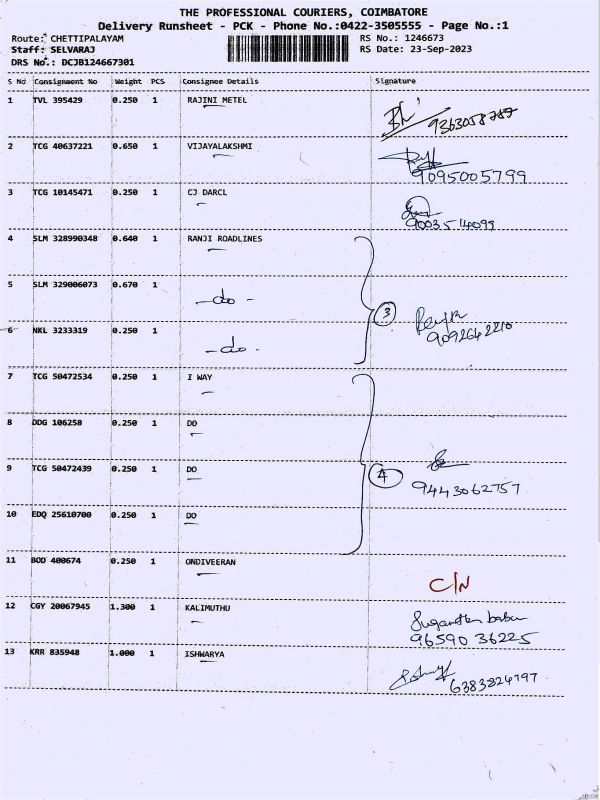 THE PROFESSIONAL COURIERS, COIMBATORE
Delivery Runsheet - PCK - Phone No.:0422-3505555 - Page No.:1
Route: CHETTIPALAYAM RS No.: 1246673
Staff: SELVARAJ RS Date: 23-Sep-2023
DRS No.: DCJB124667301
S No Consignment No Weight PCS Consignee Details Signature
1 TVL 395429 0.250 1 RAJINI METEL
9363058787
2 TCG 40637221 0.650 1 VIJAYALAKSHMI
9095005799
3 TCG 10145471 0.250 1 CJ DARCL
9003514099
4 SLM 328990348 0.640 1 RANJI ROADLINES
5 SLM 329006073 0.670 1 -do-
3
6 NKL 3233319 0.250 1 -do-
9092642210
7 TCG 50472534 0.250 1 I WAY
8 DDG 106258 0.250 1 DO
9 TCG 50472439 0.250 1 DO
4
9443062757
10 EDQ 25610700 0.250 1 DO
11 BOD 400674 0.250 1 ONDIVEERAN
C/N
12 CGY 20067945 1.300 1 KALIMUTHU
Suganthan babu
96590 36225
13 KRR 835948 1.000 1 ISHWARYA
6383824797